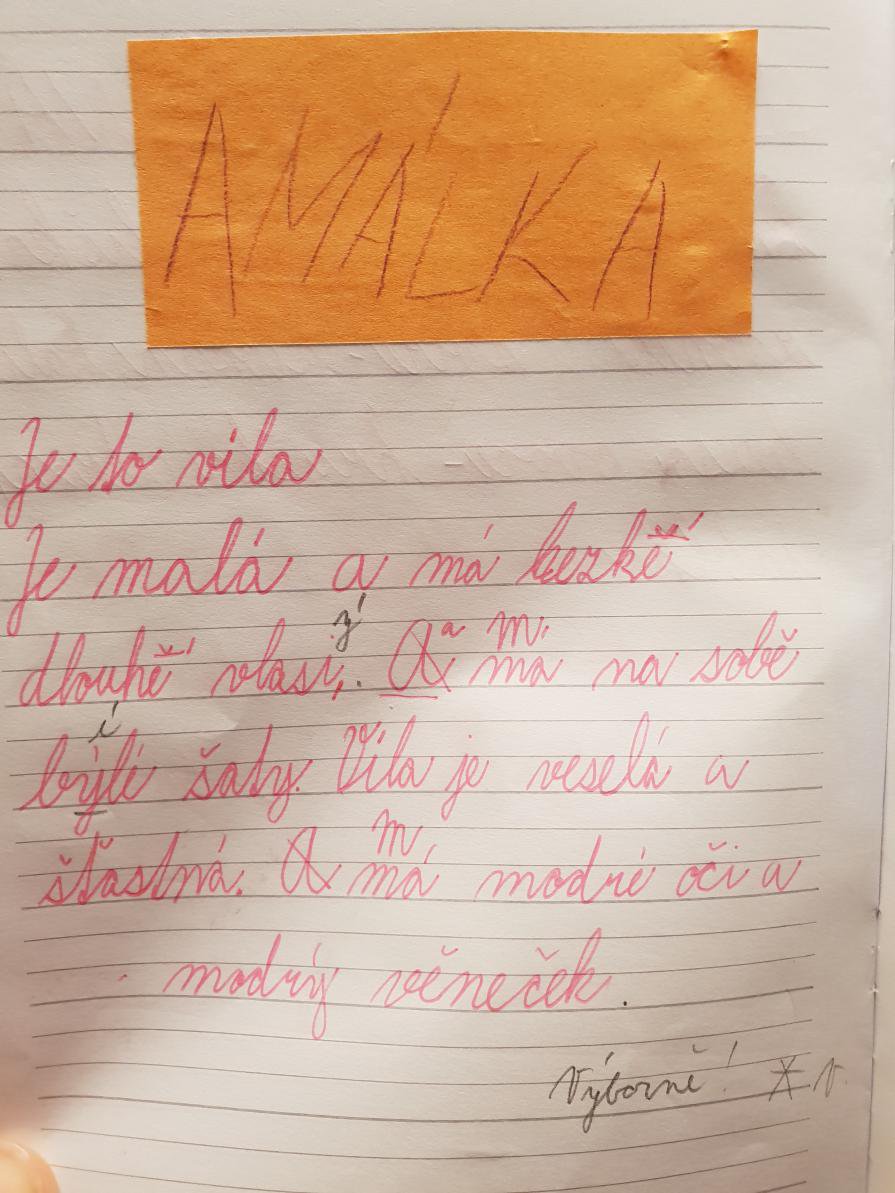 AMÁLKA
Je to vila
Je malá a má hezké
dlouhé vlasi,. A a m má na sobě
ý
býlé šaty. Víla je veselá a
í
šťastná. A m má modré oči a
modrý věneček.
Výborně!